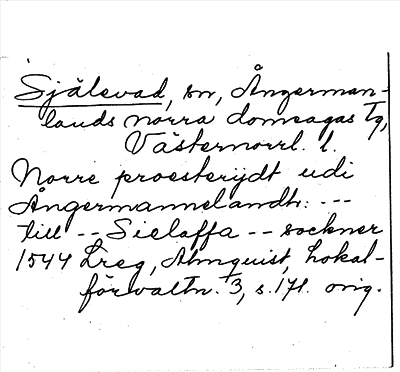 Själevad, sn, Ångerman-
lands norra domsagas tg,
Västernorrl. l.
Norre proesterijdt udi
Ångermannelandh: ---
till -- Sielaffa -- sockner
1544 Lreg, Almquist, Lokal-
förvaltn. 3, s. 171. orig.